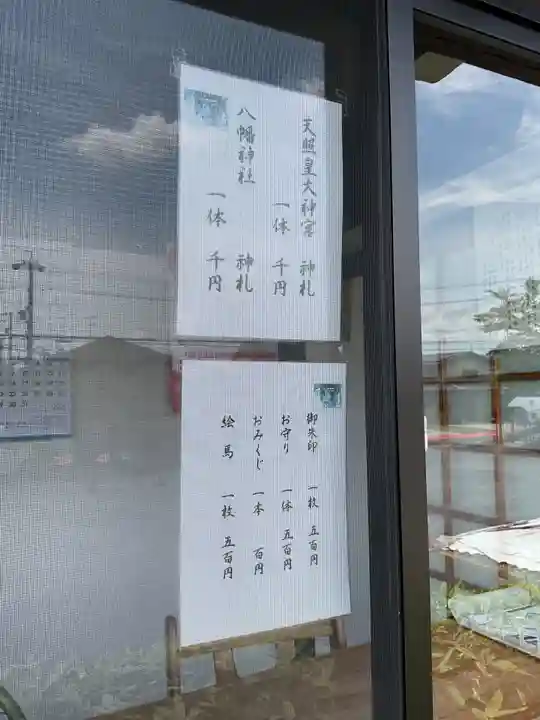 天照皇大神宮 神札
一体 千円
八幡神社 神札
一体 千円
御朱印 一枚 五百円
お守り 一体 五百円
おみくじ 一本 百円
絵馬 一枚 五百円